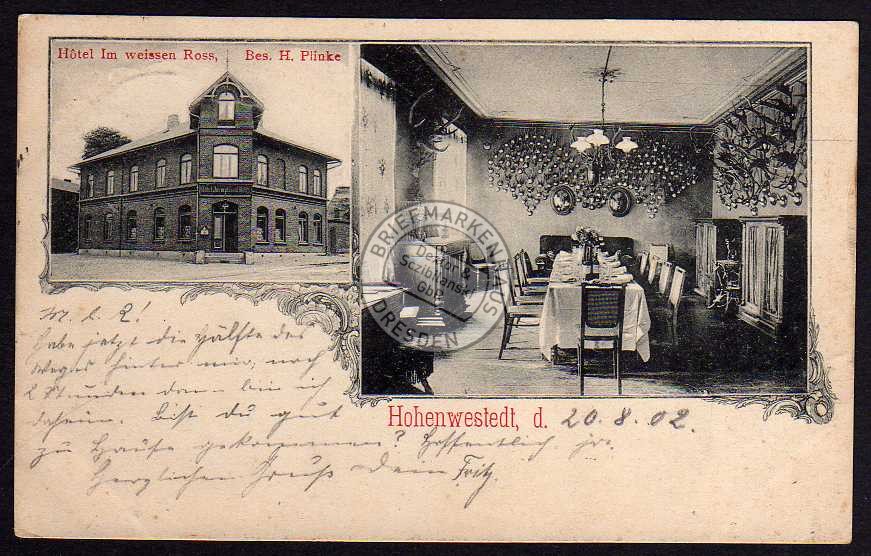 Hôtel Im weissen Ross, Bes. H. Plinke
BRIEFMARKENHAUS
DRESDEN
Hohenwestedt, d. 20.8.02.
M. l. L!
Habe jetzt die Hälfte des
Weges hinter mir, noch
2 Stunden dann bin ich
daheim. Bist du gut
zu Hause gekommen? Hoffentlich ja.
Herzlichen Gruß Dein Fritz.